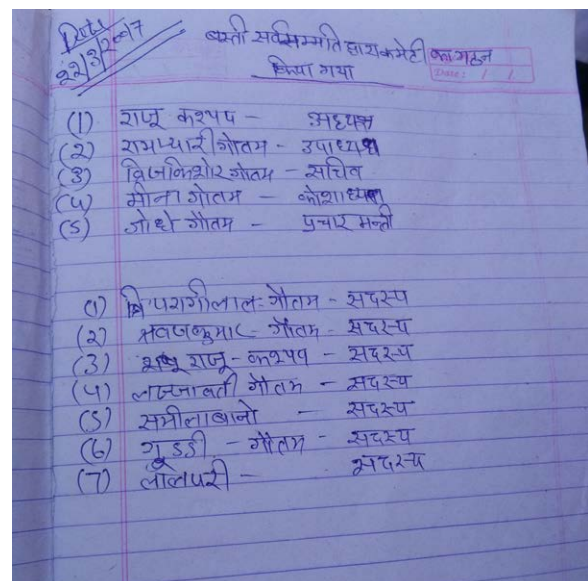 Date
22/3/2017
बस्ती सर्वसम्मति द्वारा कमेटी का गठन
किया गया
Date: / /
(1) राजू कश्यप - अध्यक्ष
(2) रामप्यारी गौतम - उपाध्यक्ष
(3) ब्रिजकिशोर गौतम - सचिव
(4) मीना गोतम - कोशाध्यक्ष
(5) जोधे गौतम - प्रचार मन्त्री
(1) परागीलाल गौतम - सदस्य
(2) श्रवणकुमार गौतम - सदस्य
(3) राजू - कश्यप - सदस्य
(4) लज्जावती गौतम - सदस्य
(5) समीलाबानो - सदस्य
(6) गूडडी - गौतम - सदस्य
(7) लालपरी - सदस्य